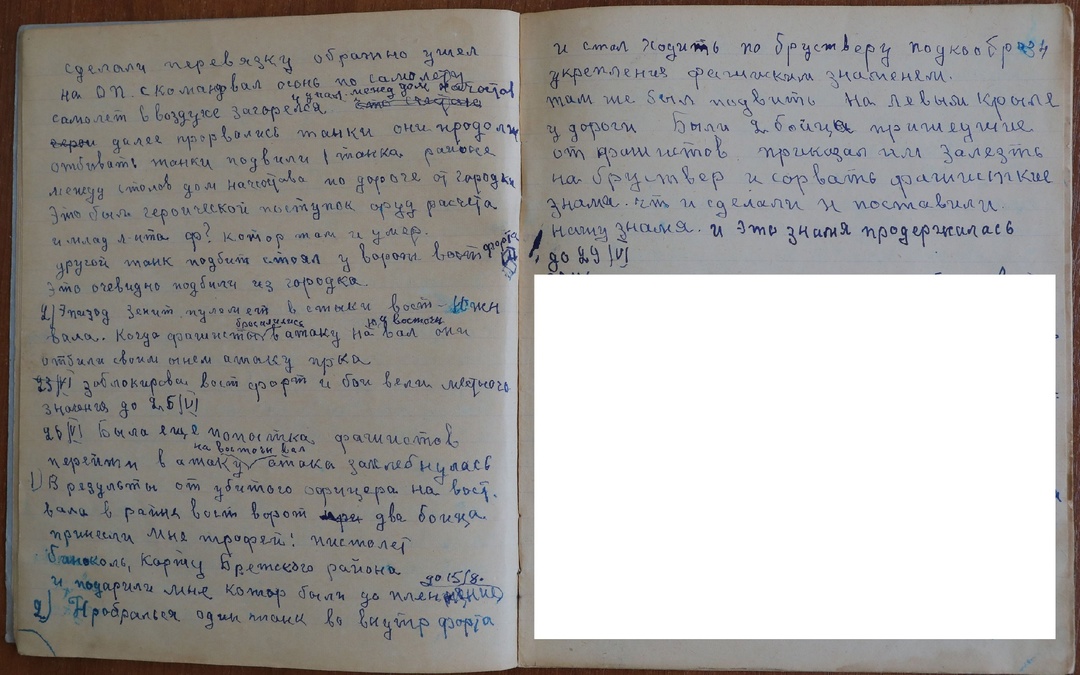 сделали перевязку обратно ушел
на ОП. скомандвал огонь по самолету
самолет в воздухе загорелся. и упал между дом начсостав
далее прорвались танки они продолж
отбивать танки подбили 1 танка районе
между столов дом начстава по дороге от городка
Это были героической поступок оруд расчета
и млад л-нта ф? котор там и умер.
другой танк подбит стоял у ворот вост форта
Это очевидно подбили из городка
2) Эпизод зенит пулемет в стыки вост-южн
вала. Когда фашисты бросились в атаку на восточн вал они
отбили своим огнем атаку
23/VI заблокировал вост форт и бои вели местного
значения до 25/VI
25/VI Была еще попытка фашистов
перейти в атаку на восточн вал атака захлебнулась
1) В результы от убитого офицера на вост.
вала в раине вост ворот два бойца
принесли мне трофей: пистолет
Карту Бретского района
и подарили мне котор были до пленнения до 15/8.
2) Пробрался один танк во внутр форта
и стал ходить по брустверу подкообрз
укрепления фашиским знаменем.
там же был подбить На левым крыле
у дороги Были 2 бойца пришедшие
от фашистов приказал им залезть
на бруствер и сорвать фашисткие
знамя. что и сделали и поставили
нашу знамя. и Это знамя продержилась
до 29/VI